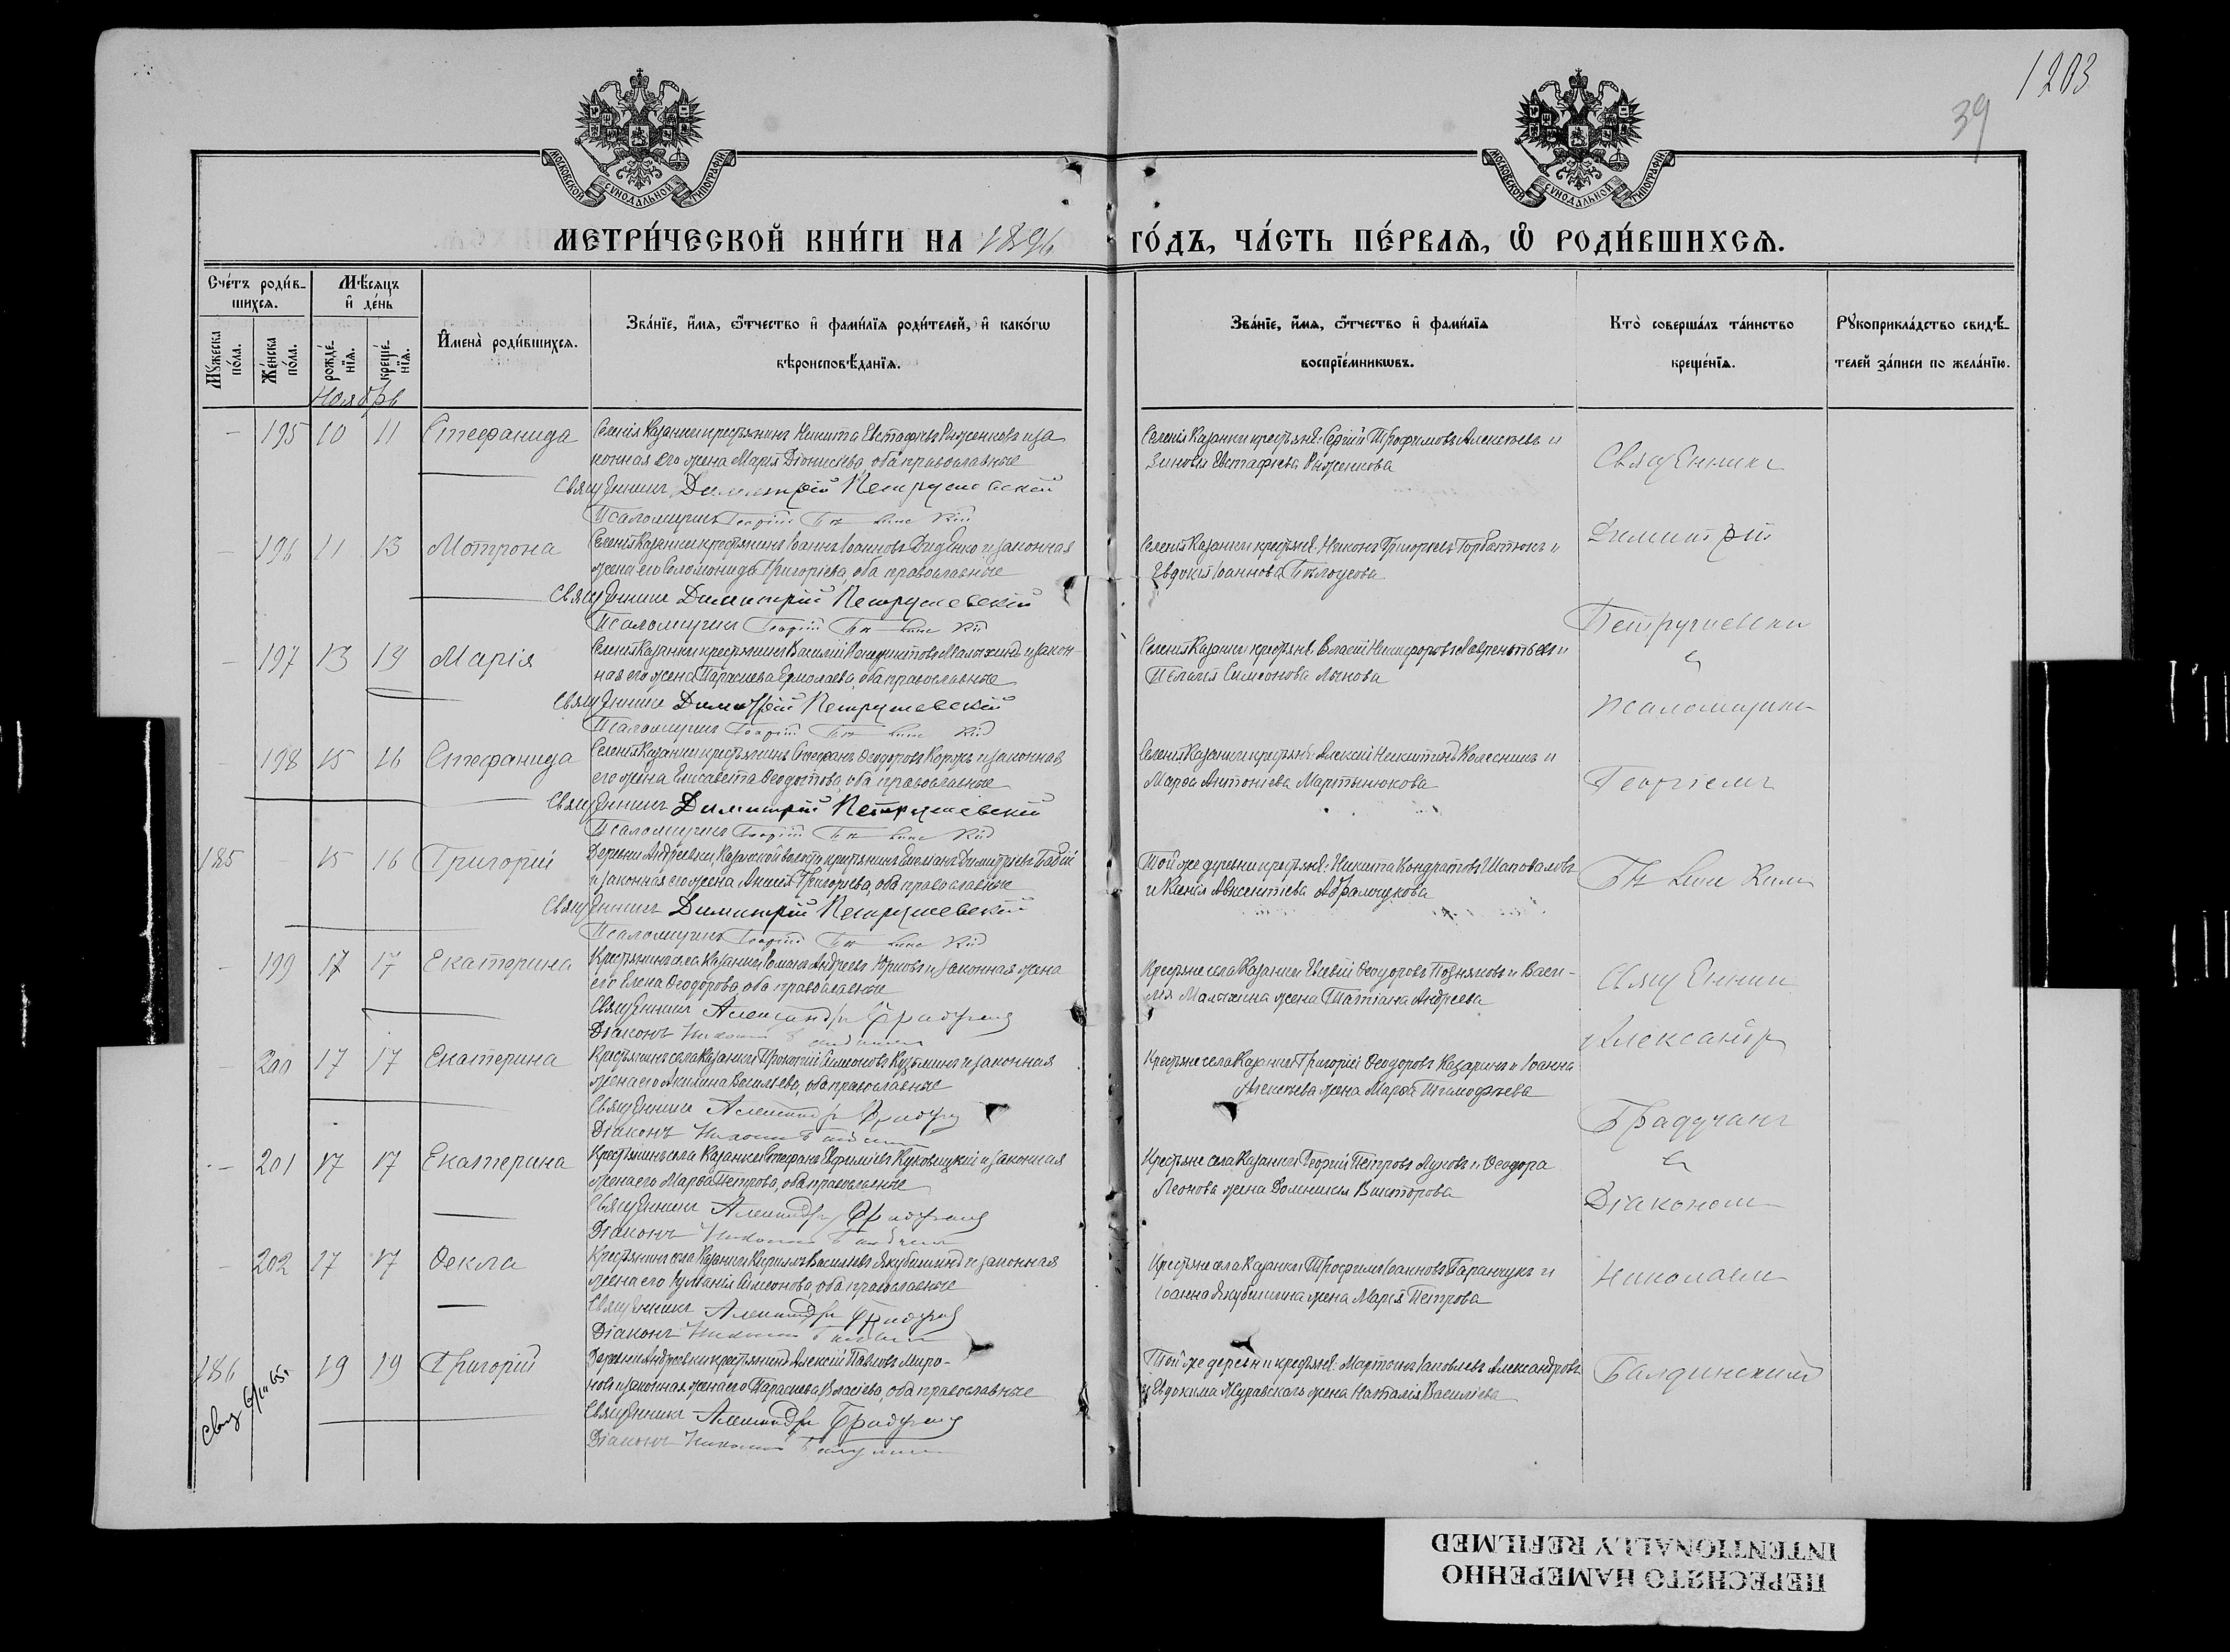 1203
39
МОСКОВСКОЙ СѴНОДАЛЬНОЙ ТИПОГРАФІИ
МОСКОВСКОЙ СѴНОДАЛЬНОЙ ТИПОГРАФІИ
МЕТРИ́ЧЕСКОЙ КНИ́ГИ НА 1896 ГО́ДЪ, ЧА́СТЬ ПЕ́РВАѦ, Ѽ РОДИ́ВШИХСѦ.
Сче́тъ роди́в-
шихсѧ.
Мѣ́сѧцъ
и҆ де́нь
Мꙋ́жеска
по́ла.
Же́нска
по́ла.
рожде́-
нїѧ.
креще́-
нїѧ.
И҆мена̀ роди́вшихсѧ.
Зва́нїе, и҆́мѧ, ѻ҆́тчество и҆ фами́лїѧ роди́телей, и҆ како́гѡ
вѣроисповѣ́данїѧ.
Зва́нїе, и҆́мѧ, ѻ҆́тчество и҆ фами́лїѧ
воспрїе́мникѡвъ.
Кто̀ соверша́лъ та́инство
креще́нїѧ.
Рꙋкоприкла́дство свидѣ́-
телей за́писи по жела́нїю.
Ноябрь
- 195 10 11 Стефанида
Селенія Казанки крестьянинъ Никита Евстафіевъ Рыженковъ и за
конная его жена Марія Діонисіева, оба православные
Священникъ Димитрій Петрушевскій
Псаломщикъ Георгій
Селенія Казанки крестьяне: Сергій Трофимовъ Алексѣевъ и
Зиновія Евстафіева Рыженкова
Священникъ
- 196 11 13 Мотрона
Селенія Казанки крестьянинъ Іоаннъ Іоанновъ Диденко и законная
жена его Соломонида Григоріева, оба православные
Священникъ Димитрій Петрушевскій
Псаломщикъ Георгій
Селенія Казанки крестьяне: Никонъ Григорьевъ Горбатюкъ и
Евдокія Іоаннова Бѣлоусова
Димитрій
- 197 13 14 Марія
Селенія Казанки крестьянинъ Василій Малыхинъ и закон-
ная его жена Параскева Ермолаева, оба православные
Священникъ Димитрій Петрушевскій
Псаломщикъ Георгій
Селенія Казанки крестьяне: Власій Никифоровъ Лаврентьевъ и
Пелагія Симеонова Лыкова
Петрушевскій
съ
псаломщикомъ
- 198 15 16 Стефанида
Селенія Казанки крестьянинъ Стефанъ Ѳеодоровъ и законная
его жена Елисавета Ѳеодотова, оба православные
Священникъ Димитрій Петрушевскій
Псаломщикъ Георгій
Селенія Казанки крестьяне: Алексій Никитинъ Колесникъ и
Марѳа Антоніева Мартынюкова
Георгіемъ
185 - 15 16 Григорій
Деревни Андреевки, Казанской волости крестьянинъ Димитріевъ
и законная его жена Анисія Григорьева, оба православные
Священникъ Димитрій Петрушевскій
Псаломщикъ Георгій
Той же деревни крестьяне: Никита Кондратовъ Шаповаловъ
и Ксенія Авксентіева Абрамчукова
- 199 17 17 Екатерина
Крестьянинъ села Казанки Романъ Андреевъ и законная жена
его Елена Ѳеодорова, оба православные
Священникъ Александръ
Діаконъ Николай
Крестьяне села Казанки Евсевій Ѳеодоровъ Позняковъ и Васи-
лія Малыхина жена Татіана Андреева
Священникъ
Александръ
- 200 17 17 Екатерина
Крестьянинъ села Казанки Прокопій Симеоновъ Кузьминъ и законная
жена его Акилина Васильева, оба православные
Священникъ Александръ
Діаконъ Николай
Крестьяне села Казанки Григорій Ѳеодоровъ Казаринъ и Іоанна
Алексѣева жена Марѳа Тимофѣева
съ
- 201 17 17 Екатерина
Крестьянинъ села Казанки Стефанъ Евфиміевъ и законная
жена его Марѳа Петрова, оба православные
Священникъ Александръ
Діаконъ Николай
Крестьяне села Казанки Георгій Петровъ Луковъ и Ѳеодора
Леонова жена Домникія Викторова
Діакономъ
- 202 17 17 Ѳекла
Крестьянинъ села Казанки Кириллъ Васильевъ Якубишинъ и законная
жена его Іуліанія Симеонова, оба православные
Священникъ Александръ
Діаконъ Николай
Крестьяне села Казанки Трофимъ Іоанновъ Баранчукъ и
Іоанна Якубишина жена Марія Петрова
Николаемъ
186 19 19 Григорій
Деревни Андреевки крестьянинъ Алексій Павловъ Миро-
новъ и законная жена его Параскева Власіева, оба православные
Священникъ Александръ
Діаконъ Николай
Той же деревни крестьяне: Мартинъ Іаковлевъ Александровъ
и Евдокима Журавскаго жена Наталія Василіева
Балдинскимъ
ПЕРЕСНЯТО НАМЕРЕННО
INTENTIONALLY REFILMED